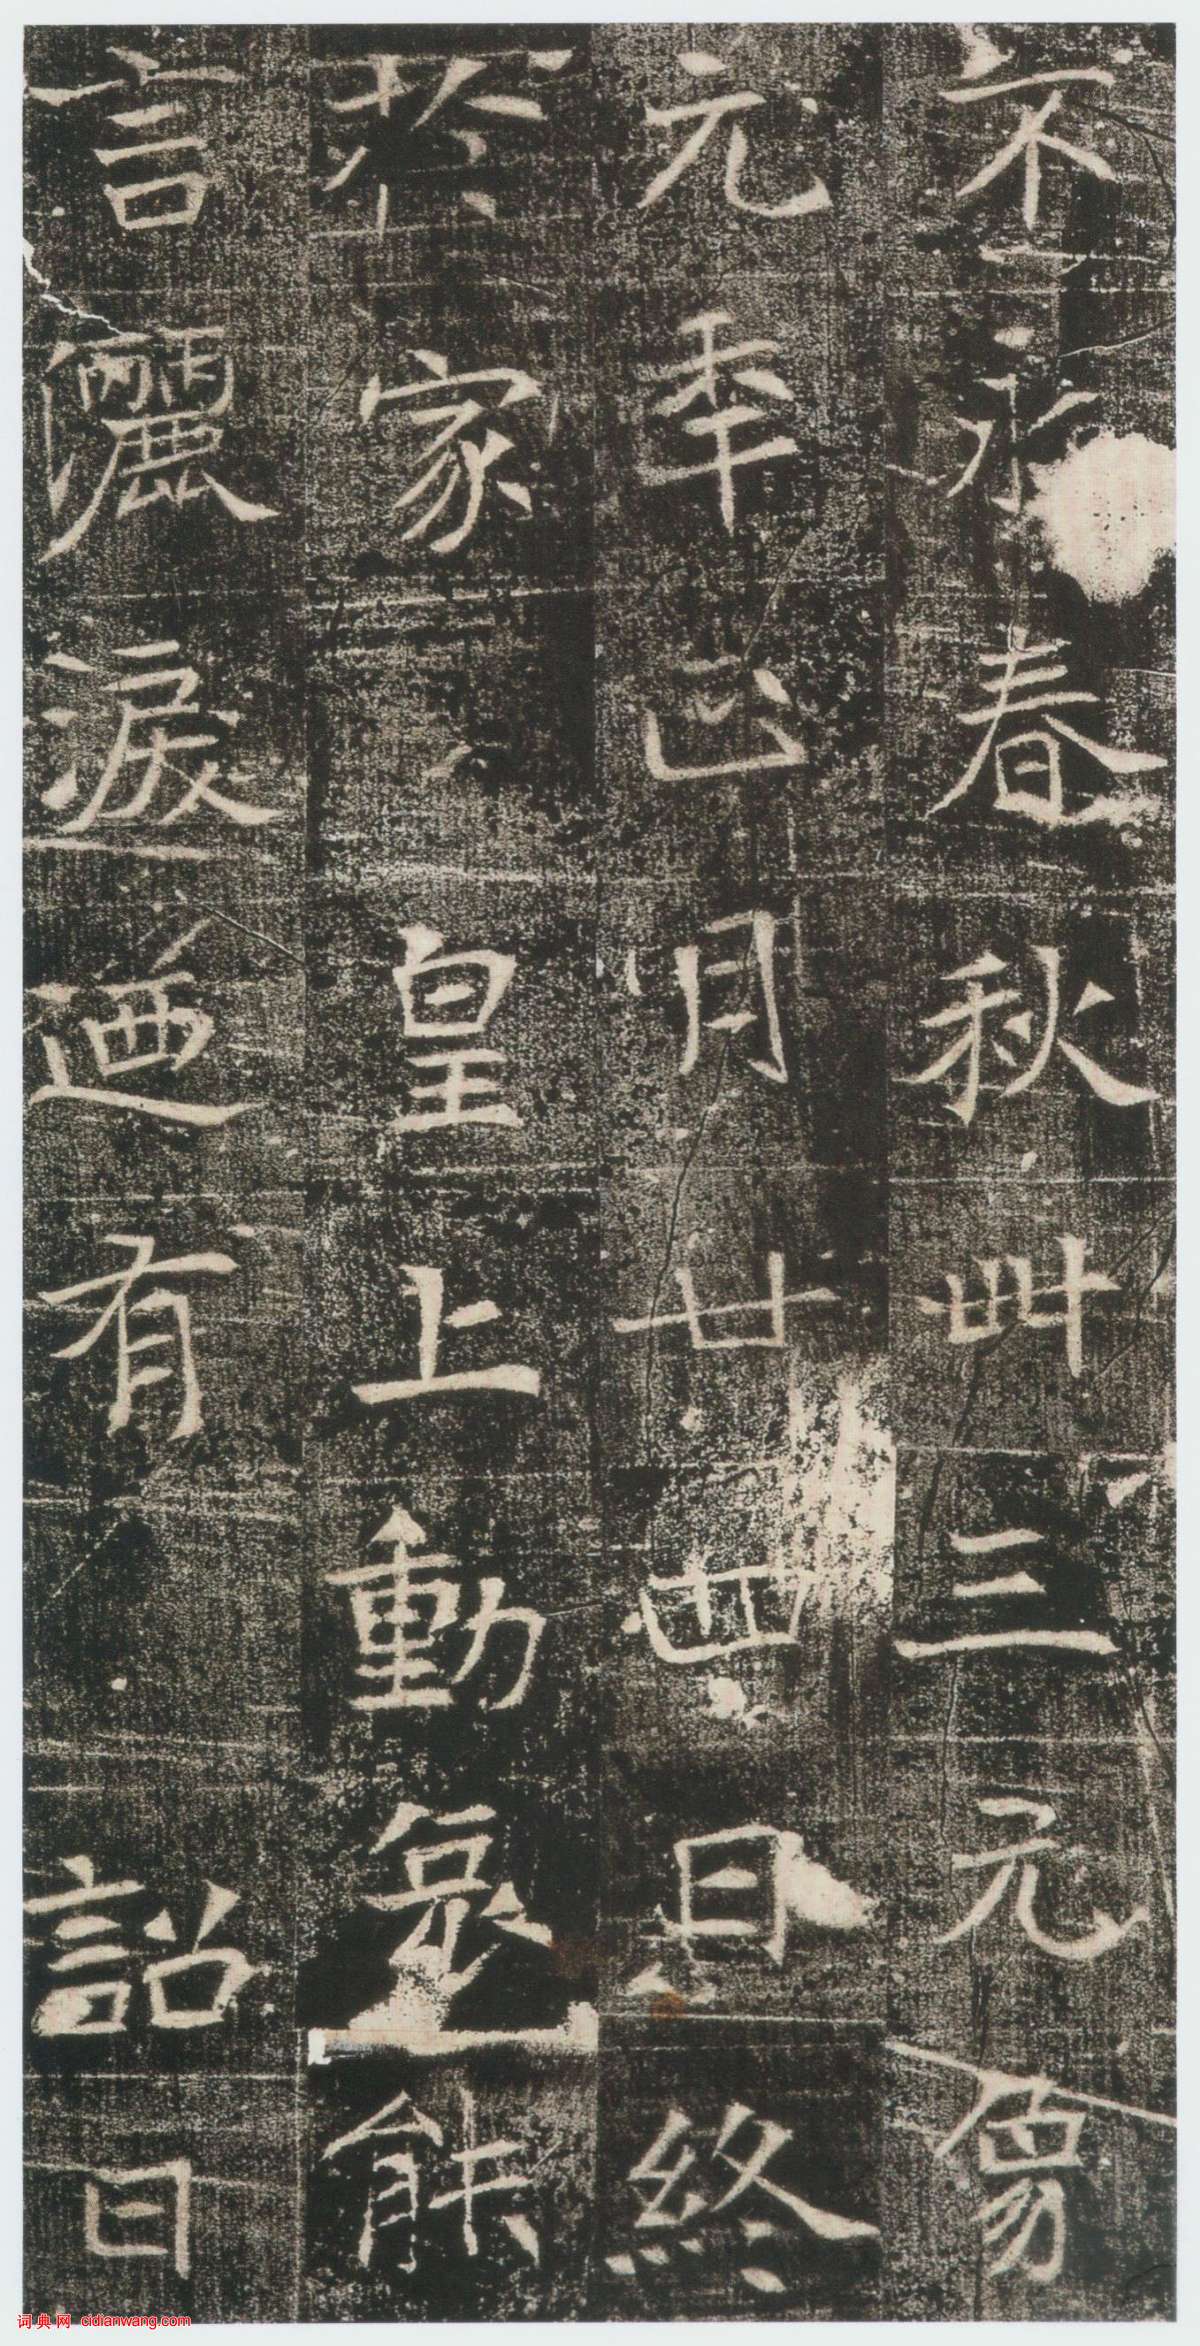 不永春秋卌三元象
元年正月廿四日終
於家 皇上動哀能
言灑淚迺有 詔曰
词典网 cidianwang.com